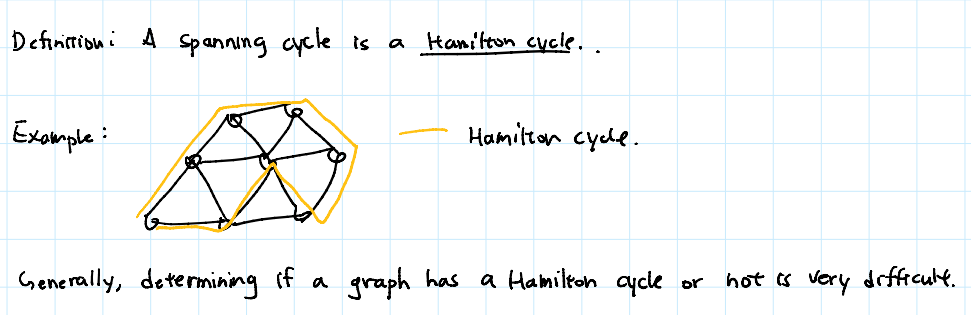 Definition: A spanning cycle is a Hamilton cycle..
Example:
Hamilton cycle.
Generally, determining if a graph has a Hamilton cycle or not is very difficult.